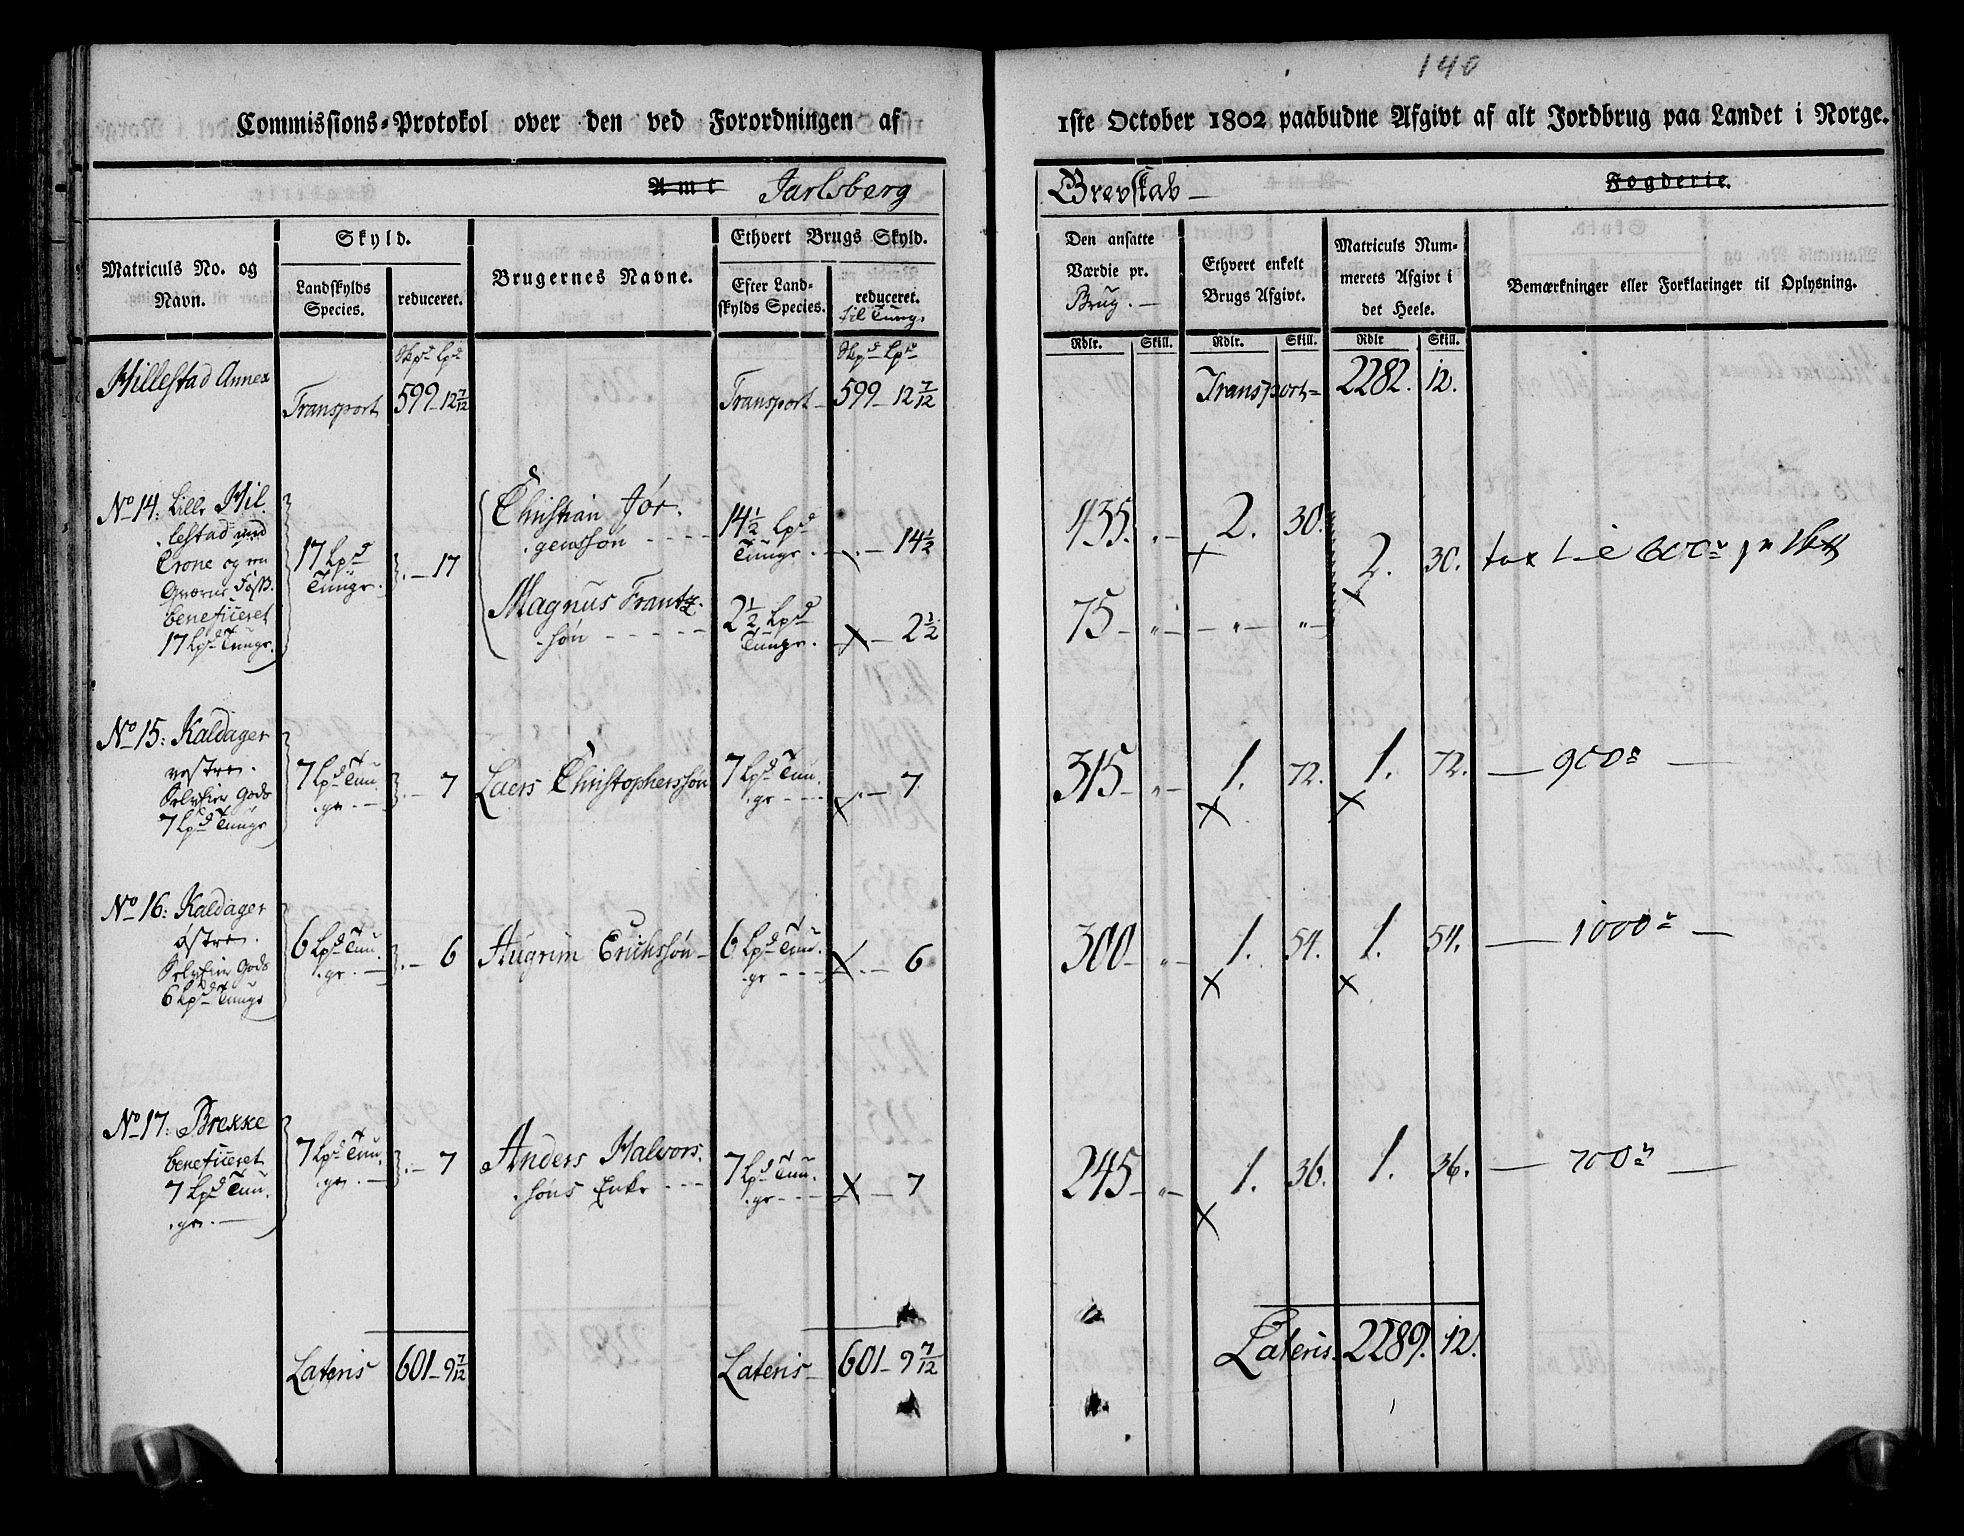 140
Commissions-Protokol over den ved Forordningen af 1ste October 1802 paabudne Afgivt af alt Jordbrug paa Landet i Norge.
Amt Jarlsberg Grevskab Fogderie.
Matriculs No. og Navn.
Skyld.
Landskylds Species.
reduceret.
Brugernes Navne.
Ethvert Brugs Skyld.
Efter Landskylds Species.
reduceret. til Tung.
Den ansatte Værdie pr. Brug.
Ethvert enkelt Brugs Afgivt.
Matriculs Nummerets Afgivt i det Heele.
Bemærkninger eller Forklaringer til Oplysning.
Rdlr. Skill. Rdlr. Skill. Rdlr Skill.
Skpd Lpd Skpd Lpd
Hillestad Annex Transport 599 - 12 7/12 Transport - 599 - 12 7/12 Transport 2282. 12.
No 14: Lille Hil-
lestad med
Crone og
Qværne
beneficeret
17 Lpd Tungr.
17 Lpd Tungr. . - 17
Christian Jør-
gensson 14 1/2 Lpd Tungr. . - 14 1/2 435. „ - 2. 30.
2. 30.
Magnus Frantz-
søn 2 1/2 Lpd Tungr. - 2 1/2 75 - „ - „ - „
No 15: Kaldager
vestre.
Selveier Gods
7 Lpd Tungr
7 Lpd Tungr. - 7 Laers Christopherssøn 7 Lpd Tungr - 7 315 - „ - 1. 72. 1. 72. — 900 —
No 16: Kaldager
østre.
Selveier Gods
6 Lpd Tungr
6 Lpd Tungr. - 6 Augrim Erichssøn - 6 Lpd Tungr - 6 300 - „ - 1. 54. 1. 54. — 1000 —
No 17: Brekke
beneficeret
7 Lpd Tungr.
7 Lpd Tungr. - 7 Anders Halvors-
søns Enke 7 Lpd Tungr - 7 245 - „ - 1. 36. 1. 36. — 700 —
Lateris 601 - 9 7/12 Lateris - 601 - 9 7/12 Lateris. 2289. 12.